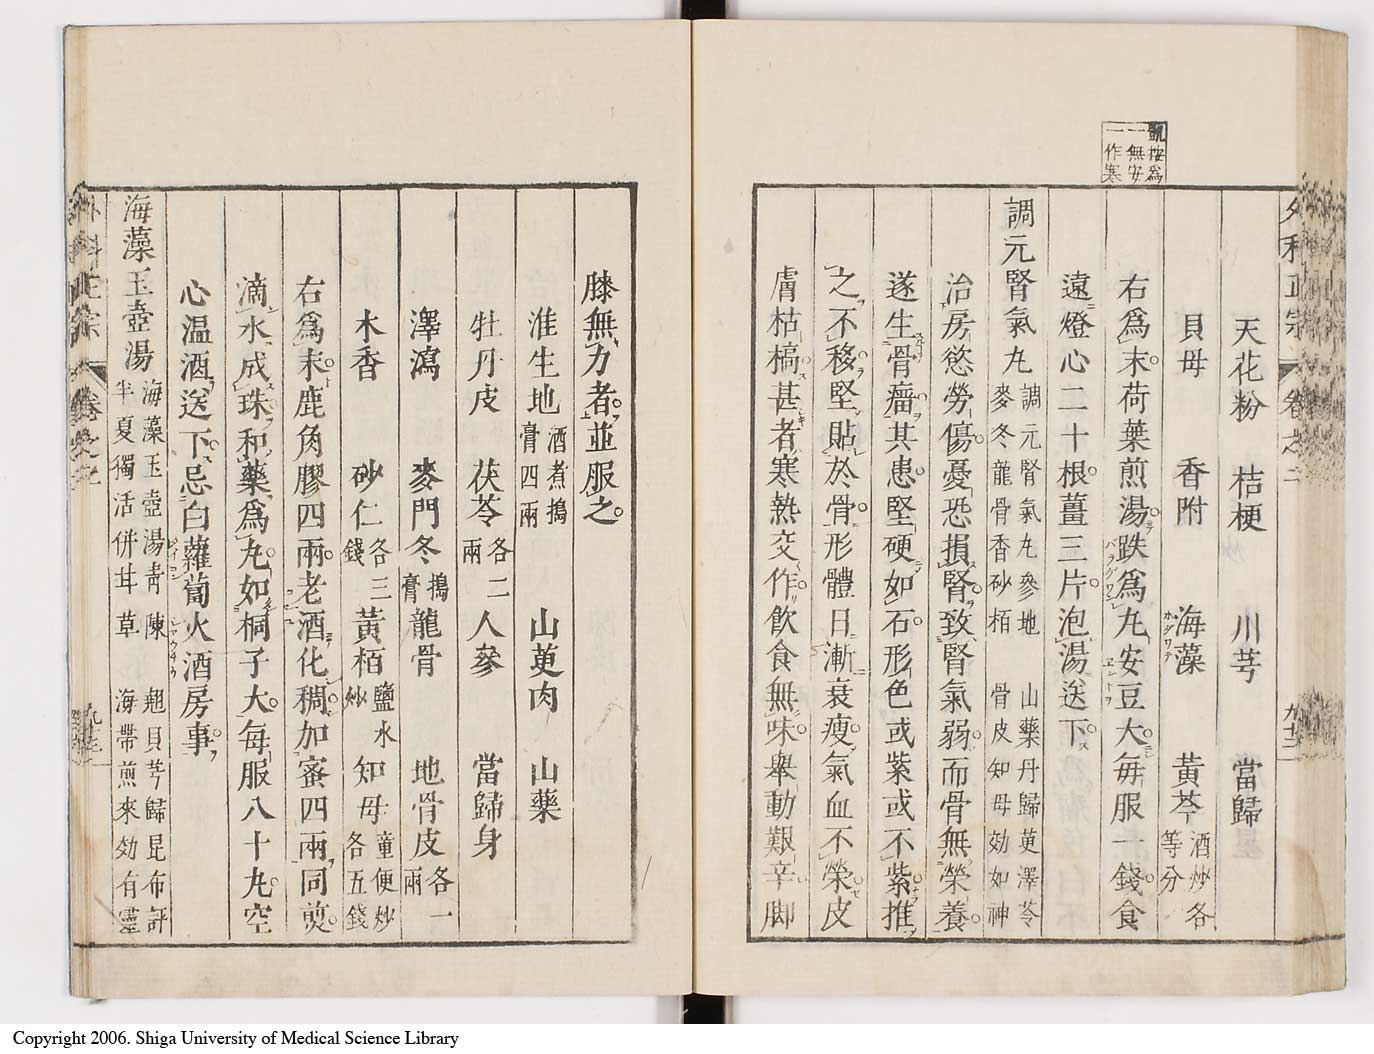 外科正宗 卷之二 九十二
凱按爲
一無安
一作寒
天花粉 桔梗 川芎 當歸
貝母 香附 海藻 黃芩 酒炒各等分
右爲末荷葉煎湯跌爲丸安豆大每服一錢食
遠燈心二十根薑三片泡湯送下
調元腎氣丸 調元腎氣丸參地 山藥丹歸萸澤苓 麥冬龍骨香砂栢 骨皮知母効如神
治房慾勞傷憂恐損腎致腎氣弱而骨無榮養
遂生骨瘤其患堅硬如石形色或紫或不紫推
之不移堅貼於骨形體日漸衰瘦氣血不榮皮
膚枯槁甚者寒熱交作飲食無味舉動艱辛脚
膝無力者並服之
淮生地 酒煮搗膏四兩 山萸肉 山藥
牡丹皮 茯苓 各二兩 人參 當歸身
澤瀉 麥門冬 搗膏 龍骨 地骨皮 各一兩
木香 砂仁 各三錢 黃栢 鹽水炒 知母 童便炒各五錢
右爲末鹿角膠四兩老酒化稠加蜜四兩同煎
滴水成珠和藥爲丸如桐子大每服八十丸空
心溫酒送下忌白蘿蔔火酒房事
海藻玉壺湯 海藻玉壺湯青陳 翹貝芎歸昆布評 半夏獨活併甘草 海帶煎來効有靈
外科正宗 卷之二